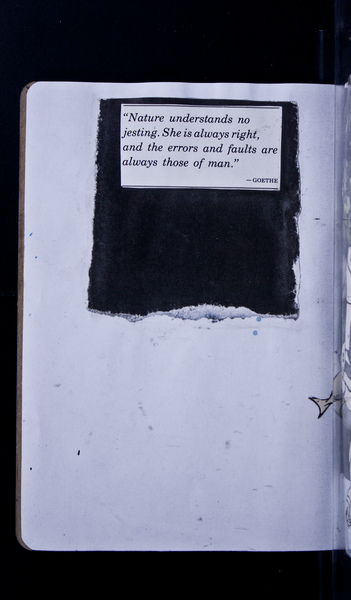 “Nature understands no
jesting. She is always right,
and the errors and faults are
always those of man.”
—GOETHE